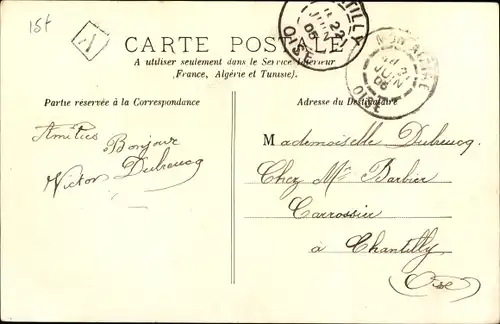 15t
A
CARTE POSTALE
A utiliser seulement dans le Service Intérieur
(France, Algérie et Tunisie).
Partie réservée à la Correspondance
Adresse du Destinataire
CHANTILLY
22
JUIN
05
OISE
JUIN
05
OISE
Amitiés
Bonjour
Victor Dubreucq
Mademoiselle Dubreucq.
Chez Mr Barbier
Carrossier
à Chantilly
(Oise)